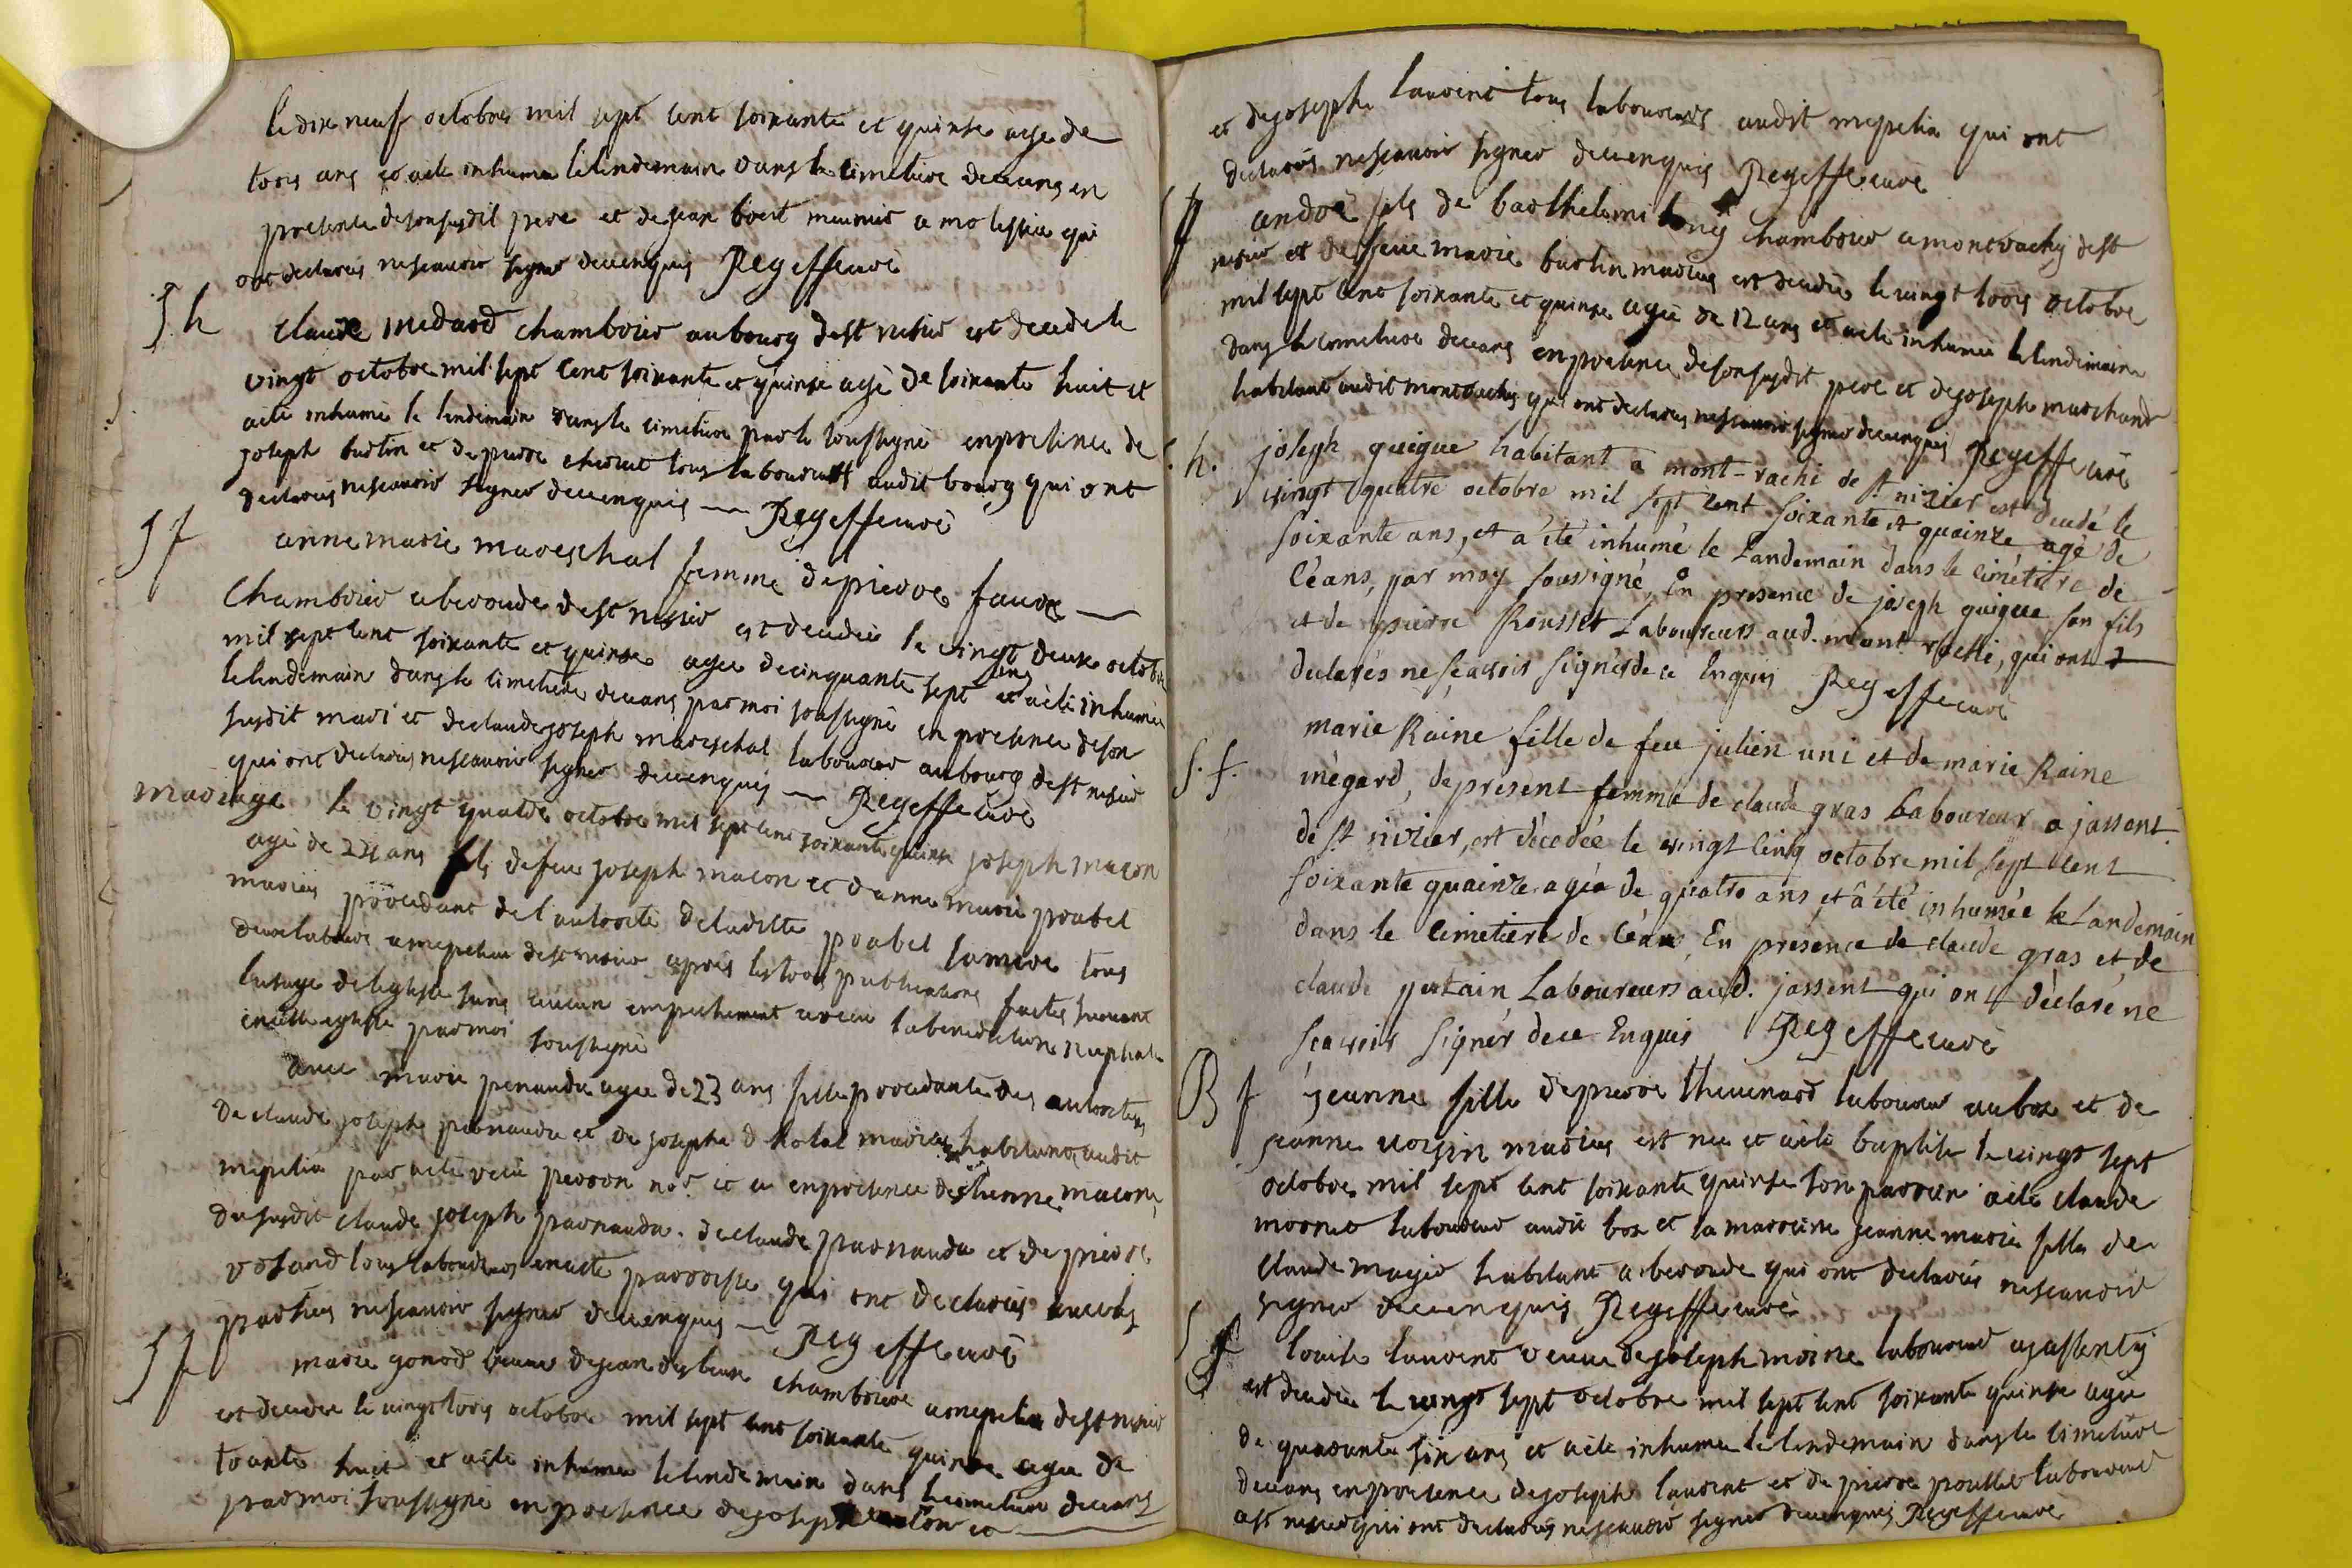 le dix neuf octobre mil sept cent soixante et quinse agé de
trois ans et a ete inhumé le lendemain dans le cimetiere de ceans en
presence de son susdit pere et de jean boest meunier a
ont declarés ne scavoir signer de ce enquis Regeffe curé
S h claude medard chambrier au bourg de st nisier est decede le
vingt octobre mil sept cent soixante et quinse agé de soixante huit et
a ete inhumé le lendemain dans le cimetiere par le soussigné en presence de
joseph burtin et de pierre tous laboureurs audit bourg qui ont
declarés ne scavoir signer de ce enquis Regeffe curé
S f anne marie mareschal femme de pierre faure
chambrier a beroude de st nisier est decedée le vingt deux octobre
mil sept cent soixante et quinse agee de cinquante sept ans et a ete inhumée
le lendemain dans le cimetiere de ceans par moi soussigné en presence de son
susdit mari et de claude joseph mareschal laboureur au bourg de st nisier
qui ont declarés ne scavoir signer de ce enquis Regeffe curé
mariage le vingt quatre octobre mil sept cent soixante quinse joseph macon
agé de 24 ans fils de feu joseph macon et d anne marie prabel
mariés procedant de l autorité de laditte prabel sa mere tous
deux a mepelin de st nisier apres les trois publications faites suivant
l usage de l eglise sans aucun empechement a recu la benediction nuptiale
en cette eglise par moi soussigné
avec marie agee de 23 ans fille procedante des autorités
de claude joseph et de josephe mariés habitans audit
mepelin par acte recu perron nore et ce en presence d etienne macon,
du susdit claude joseph de claude et de pierre
tous laboureurs en cette parroisse qui ont declarés avec les
parties ne scavoir signer de ce enquis Regeffe curé
S f marie gonod veuve de jean chambriere a mepelin de st nisier
est decedée le vingt trois octobre mil sept cent soixante quinse agee de
trante huit et a ete inhumée le lendemain dans le cimetiere de ceans
par moi soussigné en presence de joseph et
et de joseph laurent tous laboureurs audit mepelin qui ont
declarés ne scavoir signer de ce enquis Regeffe curé
S f andré fils de barthelemi chambrier a montrachy de st
nisier et de feue marie burtin mariés est decedée le vingt trois octobre
mil sept cent soixante et quinse agée de 12 ans et a ete inhumée le lendemain
dans le cimetiere de ceans en presence de son susdit pere et de joseph marchand
habitant audit montrachy qui ont declarés ne scavoir signer de ce enquis Regeffe curé
S. h. joseph guigue habitant a mont-rachi de st nizier est decedé le
vingt quatre octobre mil sept cent soixante et quainze agé de
soixante ans, et a été inhumé le Landemain dans le cimétiere de
Céans, par moy soussigné, En presence de joseph guigue son fils
et de pierre Rousset Laboureurs aud. mont rachi, qui ont
declarés ne sçavoir signér de ce Enquis Regeffe curé
S. f. marie Raine fille de feu julien uni et de marie Raine
mégard, de present femme de claude gras Laboureur a jassent
de st nizier, est décedée le vingt cinq octobre mil sept cent
soixante quainze agéé de quatre ans et a été inhumée le Landemain
dans le cimetiere de Céans En présence de claude gras et de
claude Laboureurs aud. jassent qui ont déclaré ne
sçavoir signér de ce Enquis Regeffe curé
B f jeanne fille de pierre thevenard laboureur au bos et de
jeanne voisin mariés est nee et a ete baptisé le vingt sept
octobre mil sept cent soixante quinse son parrein a ete claude
mornet laboureur audit bos et la marreine jeanne marie fille de
claude habitant a beroude qui ont declarés ne scavoir
signer de ce enquis Regeffe curé
S f louise laurent veuve de joseph moine laboureur a jassenty
est decedée le vingt sept octobre mil sept cent soixante quinse agee
de quarante six ans et a ete inhumée le lendemain dans le cimetiere
de ceans en presence de joseph laurent et de pierre laboureurs
a st nisier qui ont declarés ne scavoir signer de ce enquis Regeffe curé